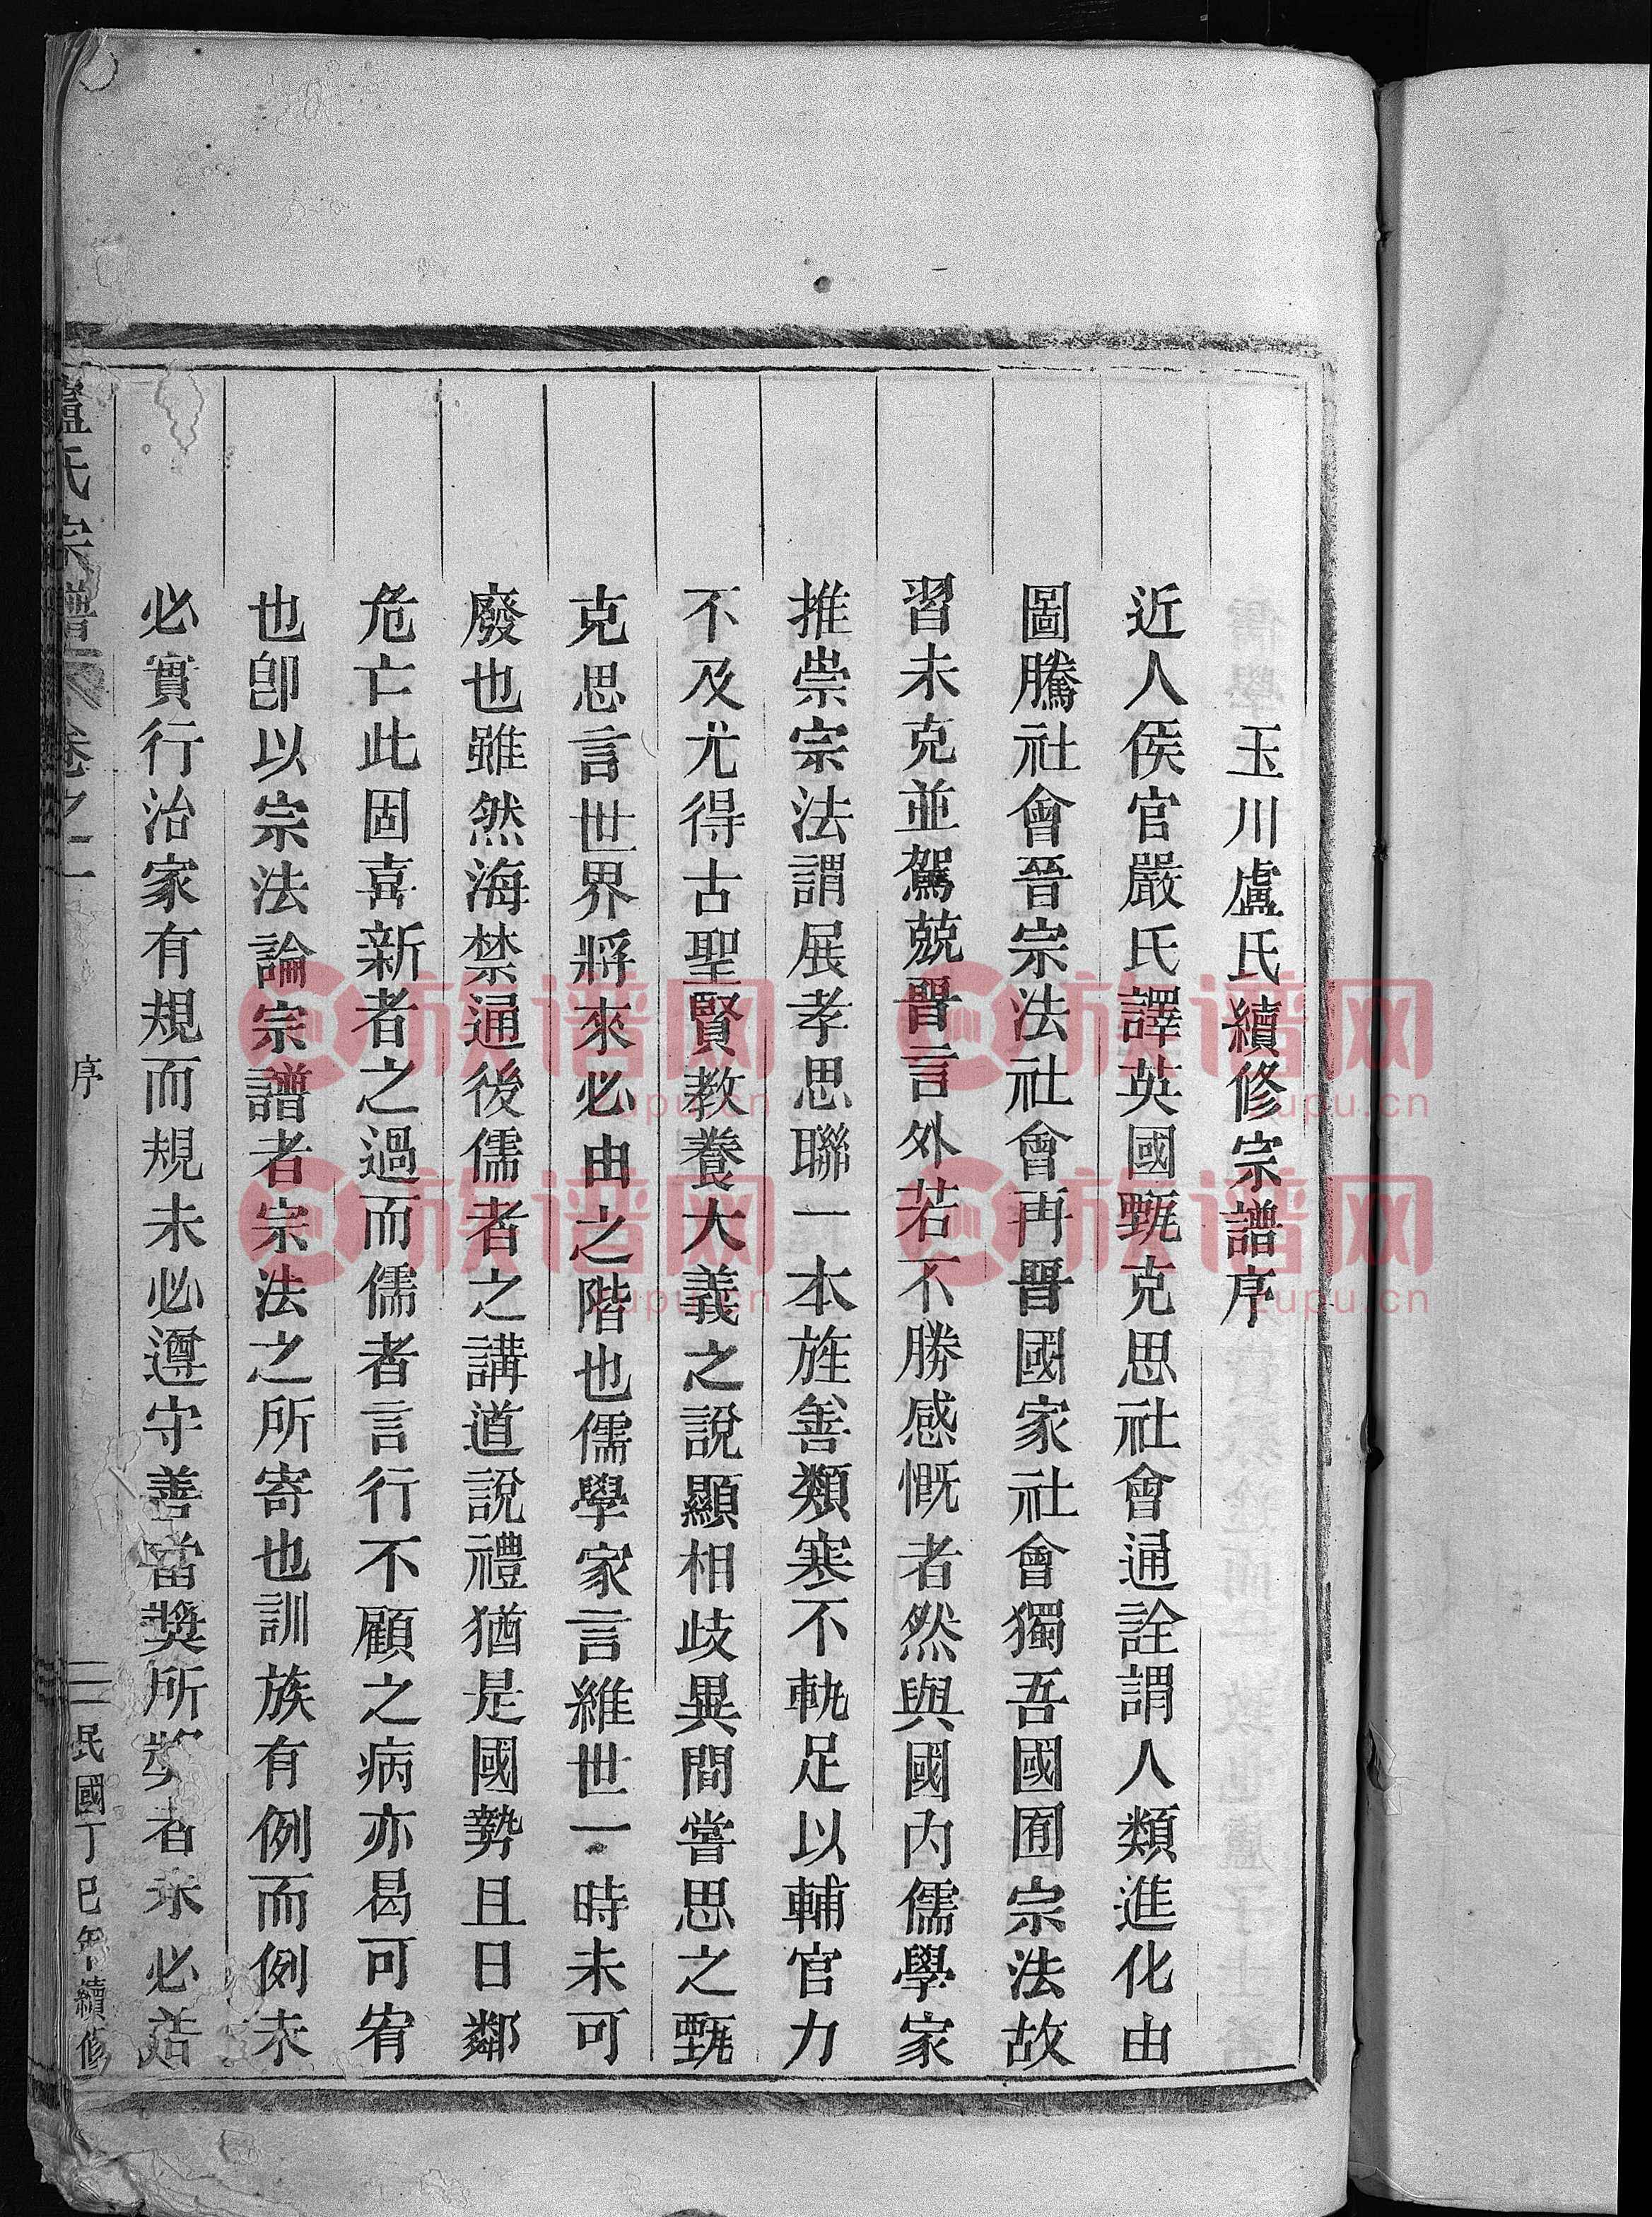 玉川盧氏續修宗譜序
近人侯官嚴氏譯英國甄克思社會通詮謂人類進化由
圖騰社會晉宗法社會再晉國家社會獨吾國囿宗法故
習未克並駕兢晉言外若不勝感慨者然與國內儒學家
推崇宗法謂展孝思聯一本旌善類寒不軌足以輔官力
不及尤得古聖賢教養大義之說顯相歧異間嘗思之甄
克思言世界將來必由之階也儒學家言維世一時未可
廢也雖然海禁通後儒者之講道說禮猶是國勢且日鄰
危亡此固喜新者之過而儒者言行不顧之病亦曷可宥
也卽以宗法論宗譜者宗法之所寄也訓族有例而例未
必實行治家有規而規未必遵守善當獎所獎者未必善
盧氏宗譜 卷之一
序
二 民國丁巳年續修
族谱网
zupu.cn
族谱网
zupu.cn
族谱网
zupu.cn
族谱网
zupu.cn